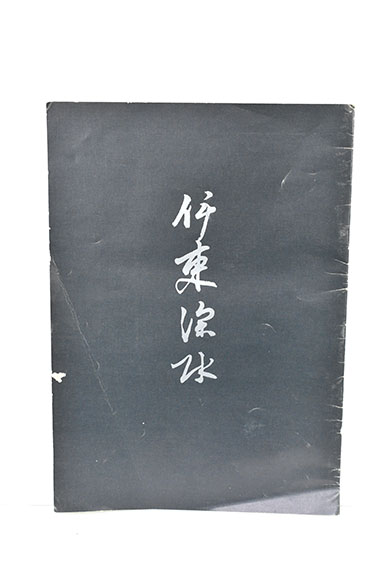 伊東深水